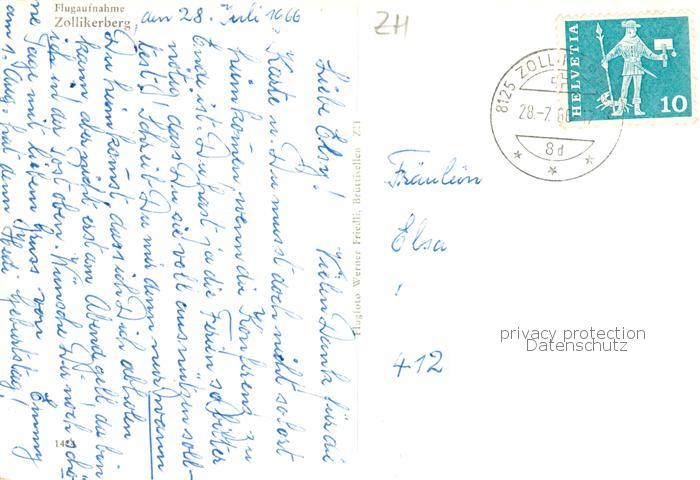 Flugaufnahme
Zollikerberg
den 28. Juli 1966
Liebe Elsy! Vielen Dank für die
Karte u. Du musst doch nicht sofort
heimkommen, wenn die Konferenz zu
Ende ist. Du hast ja die Ferien so bitter
nötig, dass Du sie voll ausnützen soll-
test! Schreib Du mir dann nur wann
Du heimkommst, dass ich Dich abholen
kann, aber gäll, erst am Abend gell, da bin
ich in der Post oben. Wünsche Dir noch schö-
ne Tage mit liebem Gruss von Emmy
am 1. Aug. hat dann Hedi Geburtstag!
Flugfoto Werner Friedli, Brüttisellen ZH
ZH
8125 ZOLL
28.-7.66
8d
HELVETIA
10
Fräulein
Elsa
!
412
privacy protection
Datenschutz